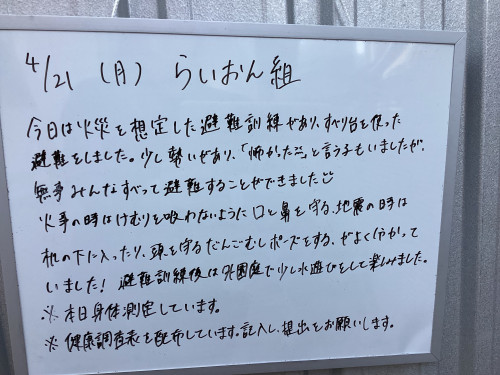 4/21 (月) らいおん組
今日は火災を想定した避難訓練があり、すべり台を使った
避難をしました。少し勢いがあり、「怖かった〜」と言う子もいましたが、
無事みんなすべって避難することができました
火事の時はけむりを吸わないように口と鼻を守る、地震の時は
机の下に入ったり、頭を守るだんごむしポーズをする、がよく分かって
いました! 避難訓練後は外園庭で少し水遊びをして楽しみました。
※本日身体測定しています。
※健康調査表を配布しています。記入し、提出をお願いします。